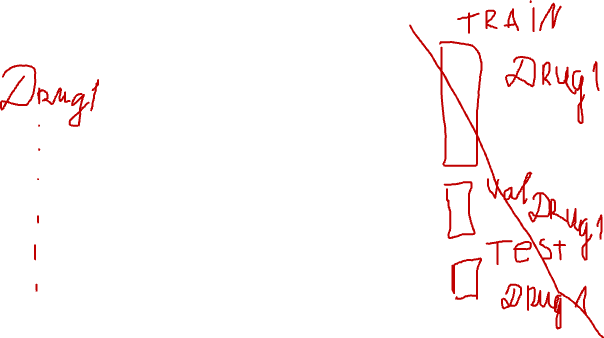 Drug1
TRAIN
DRUg1
Val
DRUg1
TEST
DRUg1